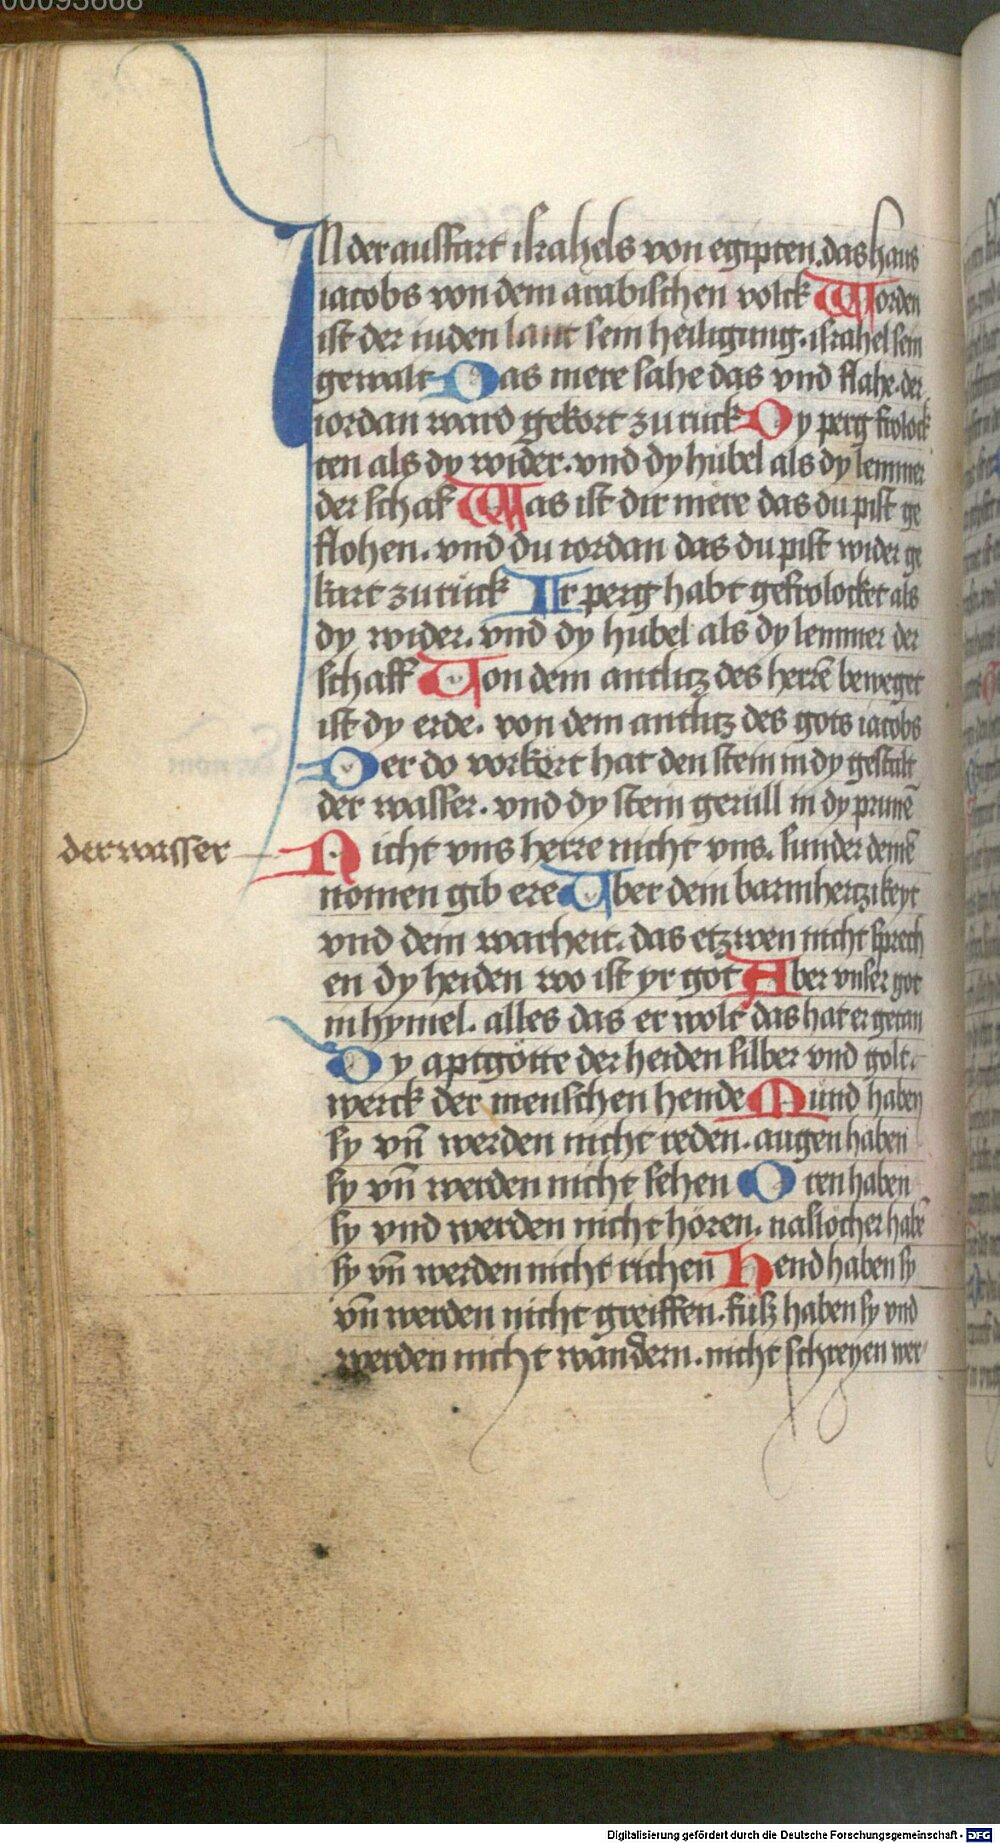 00093668
IN der ausfart israhels von egipten. das haus
iacobs von dem arabischen volck Worden
ist der iuden lant sein heiligung. israhel sein
gewalt Das mere sahe das vnd flahe. der
iordan ward gekort zu ruck Dy perg frolock
ten als dy wider. vnd dy hubel als dy lemmer
der schaf Was ist dir mere das du pist ge
flohen. vnd du iordan das du pist wider ge
kart zu rück Ir perg habt gefrolocket als
dy wider. vnd dy hubel als dy lemmer der
schaff Von dem antlitz des herrē beweget
ist dy erde. von dem antlitz des gots iacobs
Der do vorkört hat den stein in dy gestalt
der wasser. vnd dy stein gerull in dy prunē
der wasser
Nicht vns herre nicht vns. sunder deinē
nomen gib ere Vber dein barmhertzikeyt
vnd dem warheit. das etzwen nicht sprech
en dy heiden wo ist yr got Aber vnser got
in hymel. alles das er wolt das hat er getan
Dy aptgötte der heiden silber vnd golt.
werck der menschen hende Mund haben
sy vn̄ werden nicht reden. augen haben
sy vn̄ werden nicht sehen Oren haben
sy vnd werden nicht hören. naslöcher habē
sy vn̄ werden nicht richen Hend haben sy
vn̄ werden nicht greiffen. füsz haben sy vnd
werden nicht wandern. nicht schreyen wer
Digitalisierung gefördert durch die Deutsche Forschungsgemeinschaft - DFG